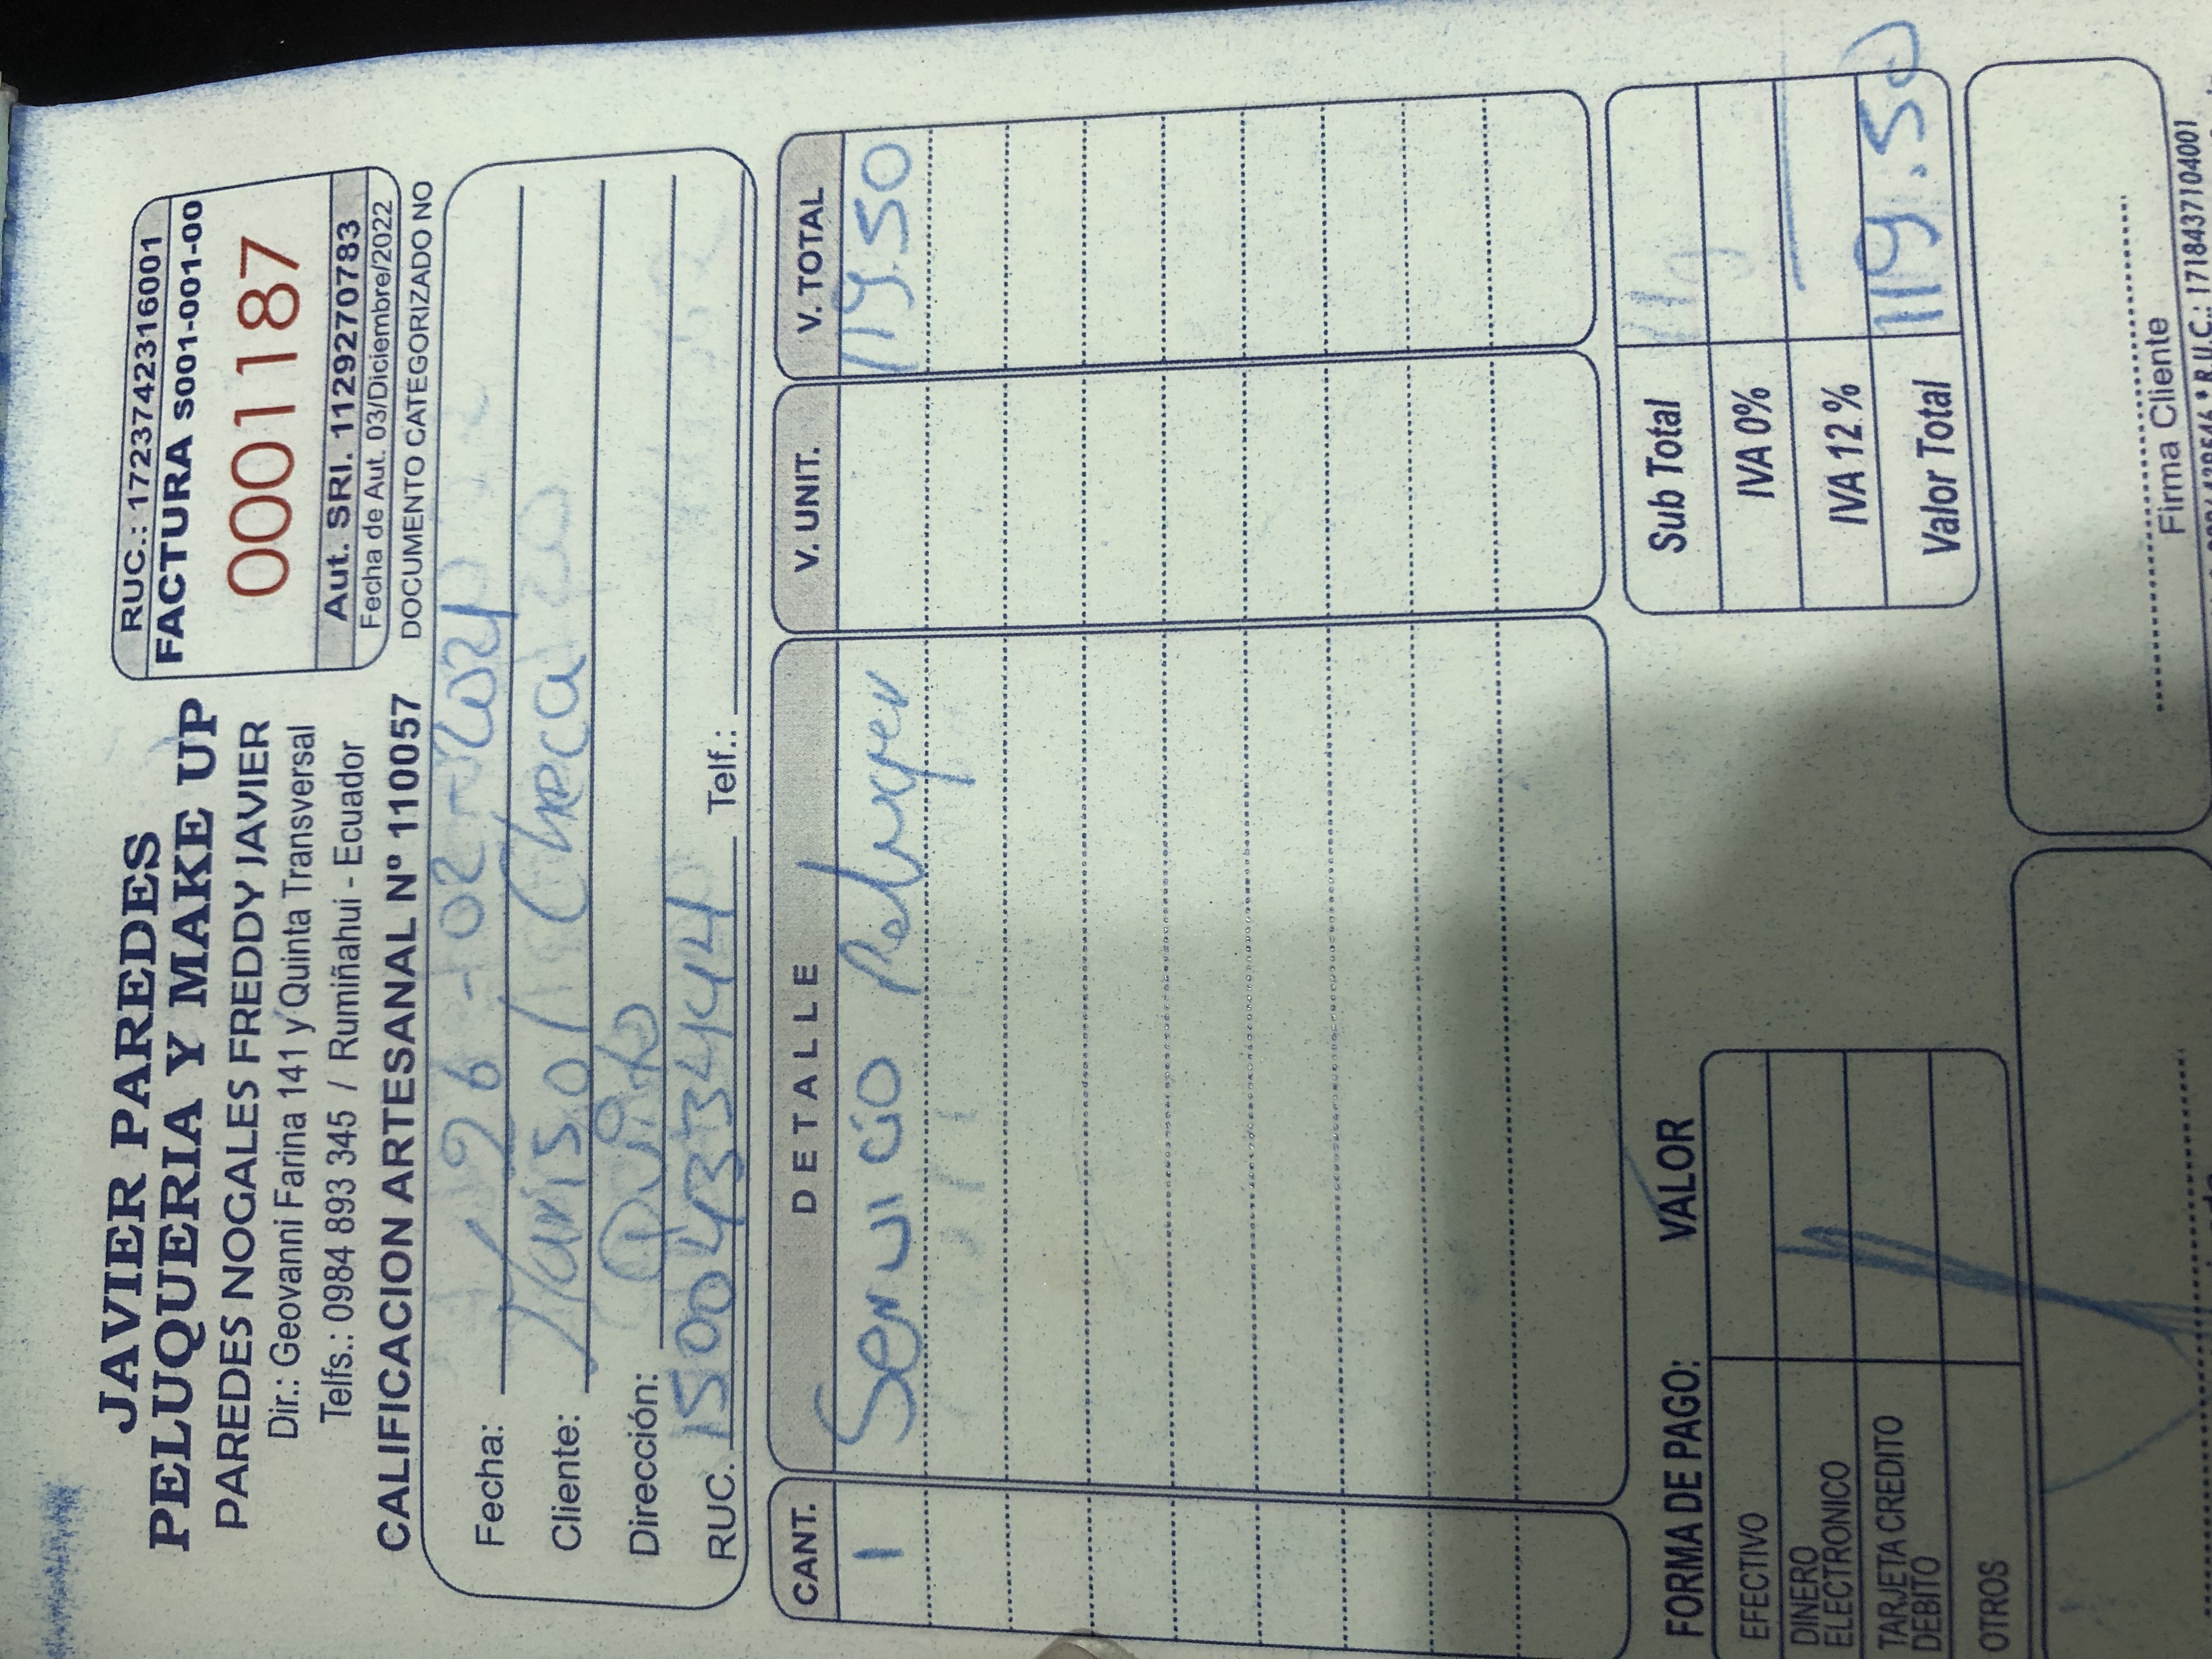 JAVIER PAREDES
PELUQUERIA Y MAKE UP
PAREDES NOGALES FREDDY JAVIER
Dir.: Geovanni Farina 141 y Quinta Transversal
Telfs.: 0984 893 345 / Rumiñahui - Ecuador
CALIFICACION ARTESANAL Nº 110057
RUC.: 1723742316001
FACTURA S001-001-00
0001187
Aut. SRI. 1129270783
Fecha de Aut. 03/Diciembre/2022
DOCUMENTO CATEGORIZADO NO
Fecha: 26-02-2021
Cliente: Marisol Checa
Dirección: Quito
RUC. 15004334444 Telf.:
CANT. DETALLE V. UNIT. V. TOTAL
1 Servicio Peluquer 119.50
FORMA DE PAGO: VALOR
EFECTIVO
DINERO
ELECTRONICO
TARJETA CREDITO
DEBITO
OTROS
Sub Total 119
IVA 0%
IVA 12%
Valor Total 119.50
Firma Cliente
* R.U.C.: 1718437104001